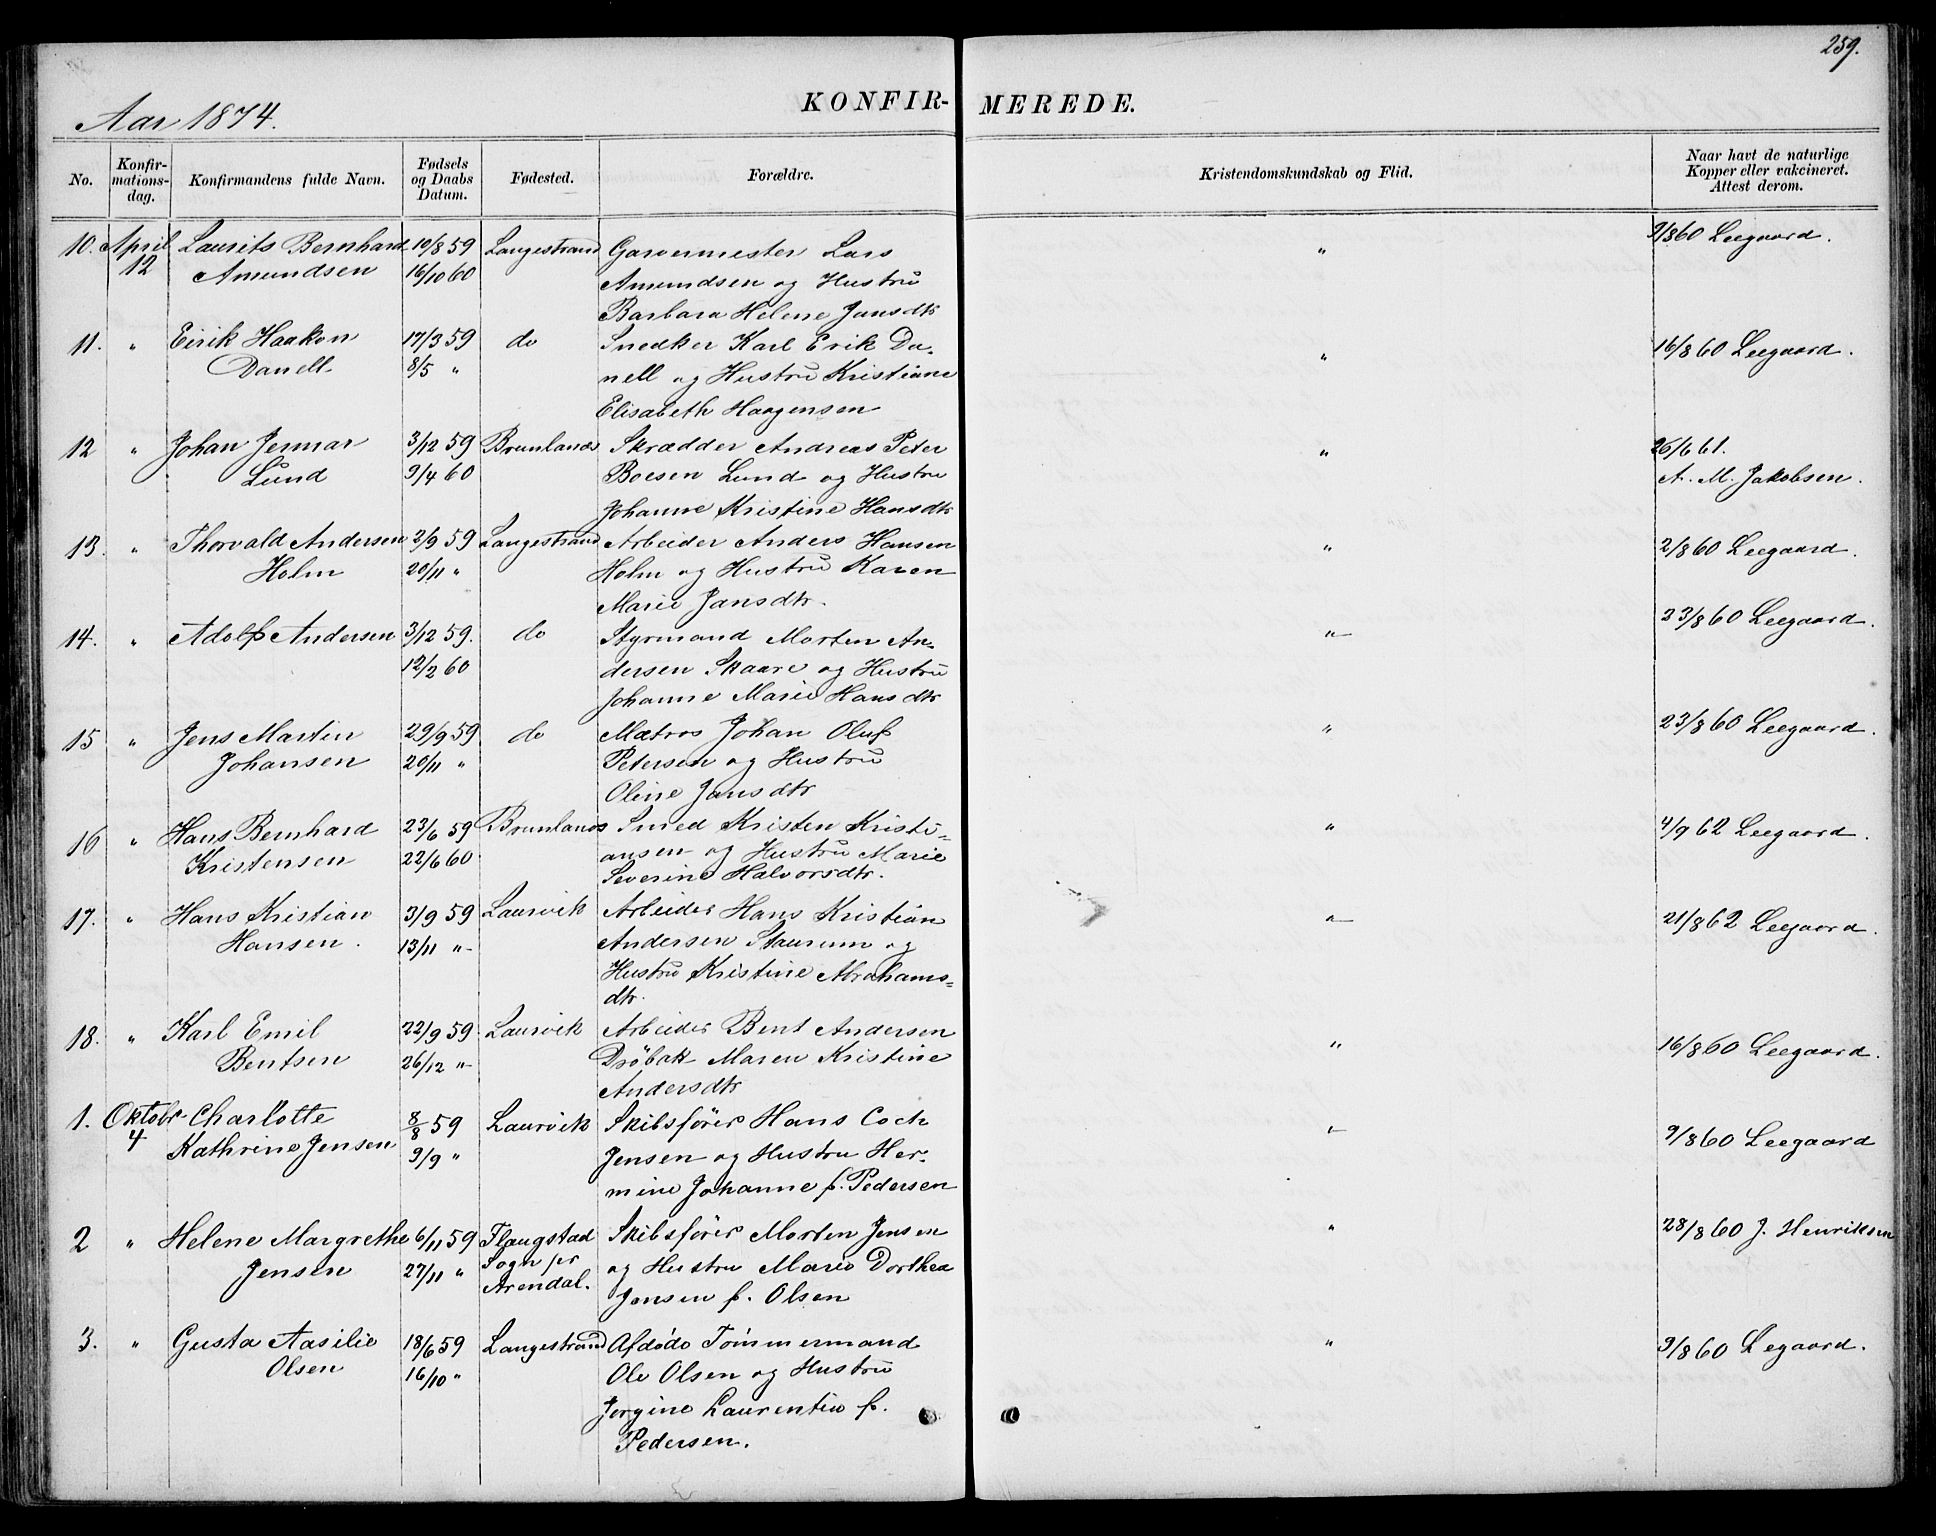 259.
Aar 1874.
KONFIR-
MEREDE.
No.
Konfir-
mations-
dag.
Konfirmandens fulde Navn.
Fødsels
og Daabs
Datum.
Fødested.
Forældre.
Kristendomskundskab og Flid.
Naar havt de naturlige
Kopper eller vakcineret.
Attest derom.
10. April Laurits Bernhard 10/8 59 Langestrand Garvermester Lars " 9/8 60 Leegaard.
12 Amundsen 16/10 60 Amundsen og Hustru
Barbara Helene Jansdtr
11. " Eirik Haakon 17/3 59 do Snedker Karl Erik Da- " 16/8 60 Leegaard.
Danell 8/5 " nell og Hustru Kristiane
Elisabeth Haagensen
12 " Johan Jermar 3/12 59 Brunlanæs Skrædder Andreas Peter " 26/6 61.
Lund 9/4 60 Boesen Lund og Hustru A. M. Jakobsen.
Johanne Kristine Hansdtr
13. " Thorvald Andersen 2/9 59 Langestrand Arbeider Anders Hansen " 2/8 60 Leegaard.
Holm 20/11 " Holm og Hustru Karen
Marie Jansdtr.
14. " Adolf Andersen 3/12 59. do Styrmand Morten An- " 23/8 60 Leegaard.
12/2 60 dersen Skaare og Hustru
Johanne Marie Hansdtr
15 " Jens Martin 29/9 59 do Matros Johan Oluf " 23/8 60 Leegaard.
Johansen 20/11 " Petersen og Hustru
Oline Jansdtr
16 " Hans Bernhard 23/6 59 Brunlanæs Smed Kristen Kristi- " 4/9 62 Leegaard.
Kristensen 22/6 60 ansen og Hustru Marie
Severine Halvorsdtr.
17. " Hans Kristian 3/9 59 Laurvik Arbeider Hans Kristian " 21/8 62 Leegaard.
Hansen. 13/11 " Andersen Staurum og
Hustru Kristine Abrahams-
dtr.
18. " Karl Emil 22/9 59 Laurvik Arbeider Bent Andersen " 16/8 60 Leegaard.
Bentsen 26/12 " Dröbak Maren Kristine
Andersdtr
1. Oktobr Charlotte 8/8 59 Laurvik Skibsförer Hans Coch " 9/8 60 Leegaard
4 Kathrine Jensen 9/9 " Jensen og Hustru Her-
mine Johanne f. Pedersen
2 " Helene Margrethe 6/11 59 Flaugstad Skibsförer Morten Jensen " 28/8 60 J. Henriksen
Jensen 27/11 " Sogn pr og Hustru Marie Dorthea
Arendal. Jensen f. Olsen
3. " Gusta Aasilie 18/6 59 Langestrand Afdöde Tömmermand " 9/8 60 Legaard.
Olsen 16/10 " Ole Olsen og Hustru
Jorgine Laurentie f.
Pedersen.